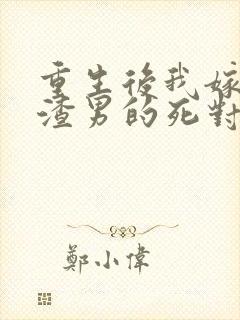 重生後我嫁
渣男的死對
鄭小偉